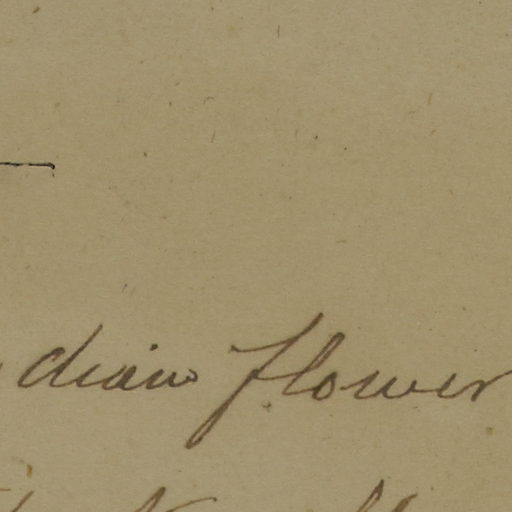 dian flower